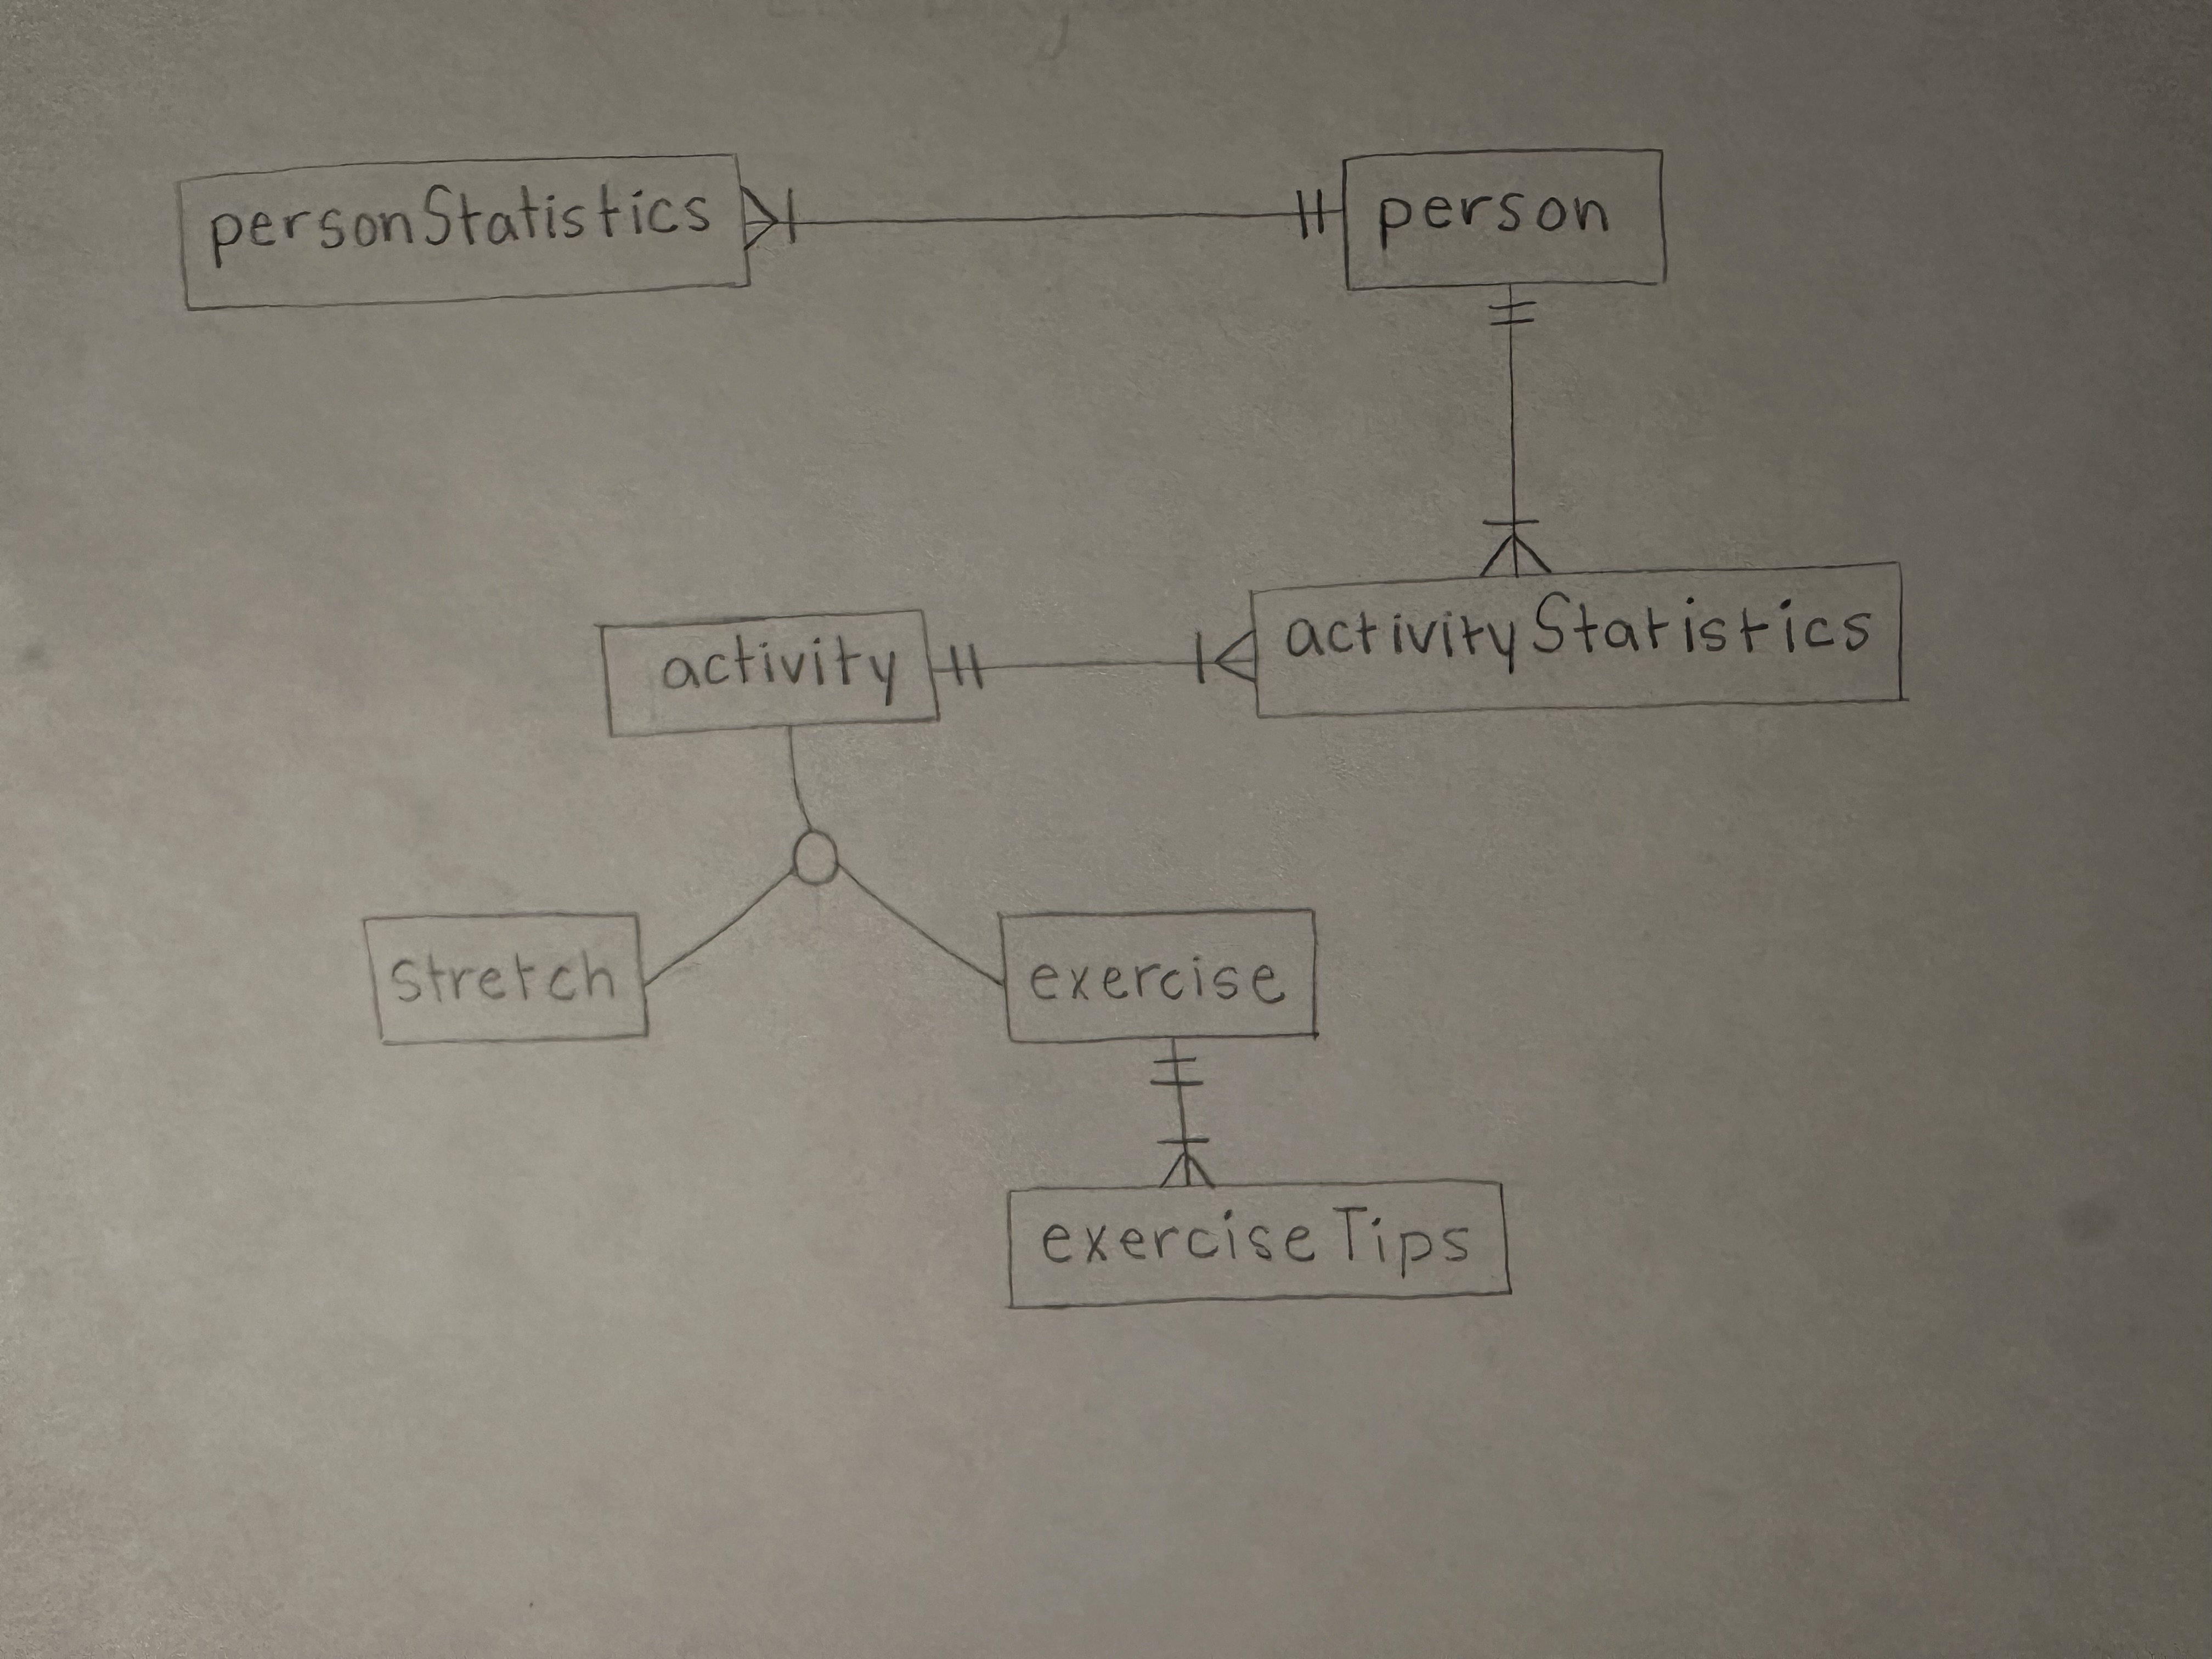 personStatistics
person
activity
activityStatistics
stretch
exercise
exerciseTips